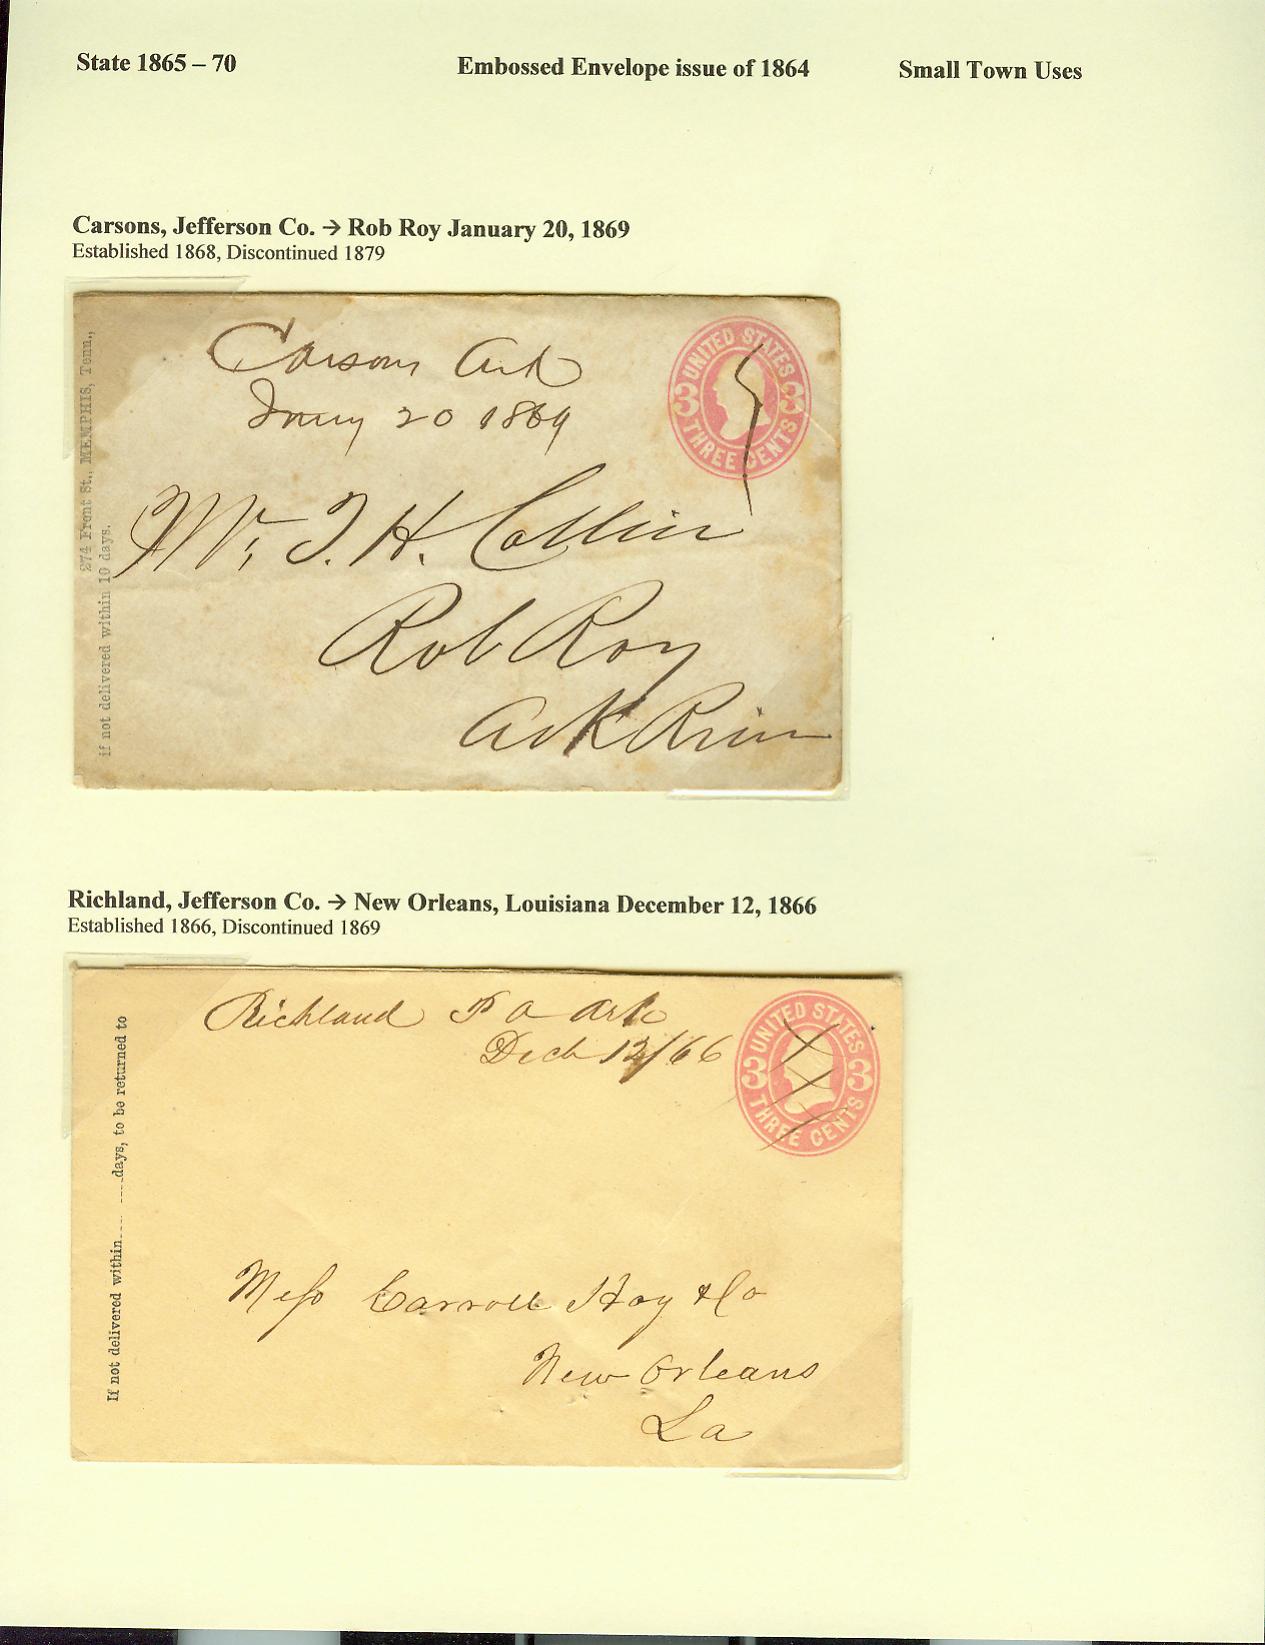 State 1865 – 70 Embossed Envelope issue of 1864 Small Town Uses
Carsons, Jefferson Co. → Rob Roy January 20, 1869
Established 1868, Discontinued 1879
Carsons Ark
Jany 20 1869
UNITED STATES
3 3
THREE CENTS
274 Front St., MEMPHIS, Tenn.,
if not delivered within 10 days.
Mr. T. H. Collier
Rob Roy
Ark River
Richland, Jefferson Co. → New Orleans, Louisiana December 12, 1866
Established 1866, Discontinued 1869
Richland P O Ark
Dec 12/66
UNITED STATES
3 3
THREE CENTS
If not delivered within.... ....days, to be returned to
Mess Carroll Hoy & Co
New Orleans
La